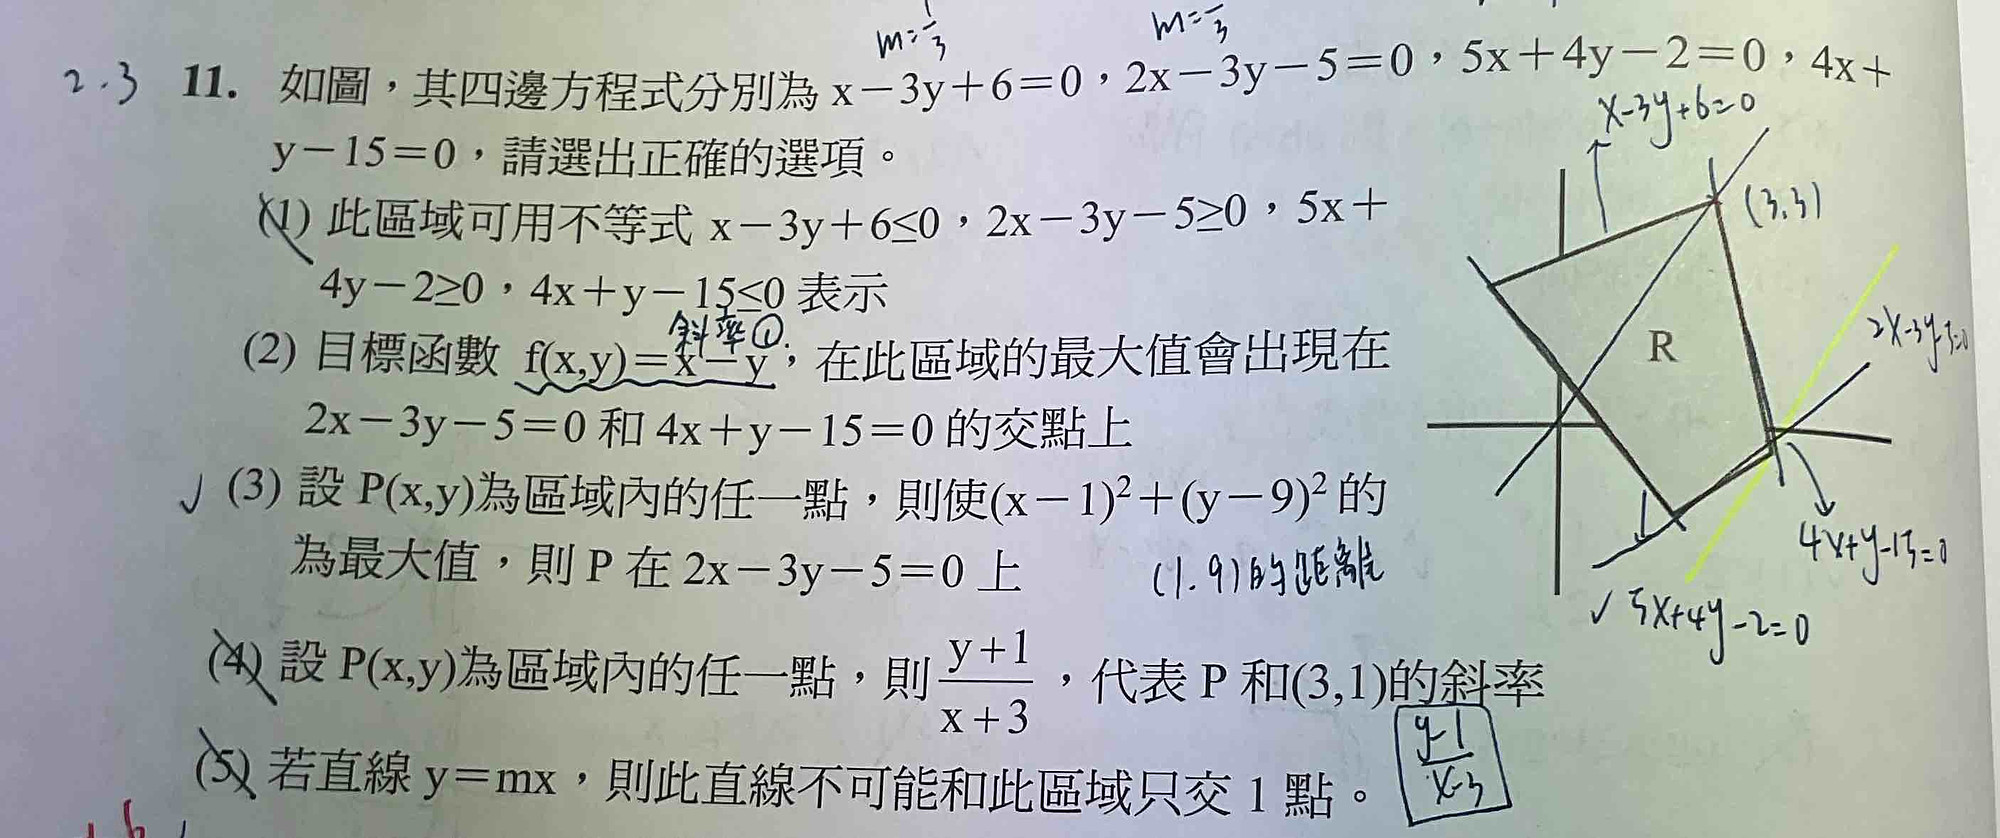 m=1/3
m=-/3
2.3 11. 如圖，其四邊方程式分別為 x－3y＋6＝0，2x－3y－5＝0，5x＋4y－2＝0，4x＋
y－15＝0，請選出正確的選項。
x-3y+6=0
(1) 此區域可用不等式 x－3y＋6≤0，2x－3y－5≥0，5x＋
(3.3)
4y－2≥0，4x＋y－15≤0 表示
斜率①
(2) 目標函數 f(x,y)＝x－y，在此區域的最大值會出現在
R
2x-3y-5=0
2x－3y－5＝0 和 4x＋y－15＝0 的交點上
✓ (3) 設 P(x,y)為區域內的任一點，則使(x－1)²＋(y－9)² 的
為最大值，則 P 在 2x－3y－5＝0 上
(1.9)的距離
4x+y-15=0
✓ 5x+4y-2=0
(4) 設 P(x,y)為區域內的任一點，則 y＋1/x＋3，代表 P 和(3,1)的斜率
y-1/x-3
(5) 若直線 y＝mx，則此直線不可能和此區域只交 1 點。